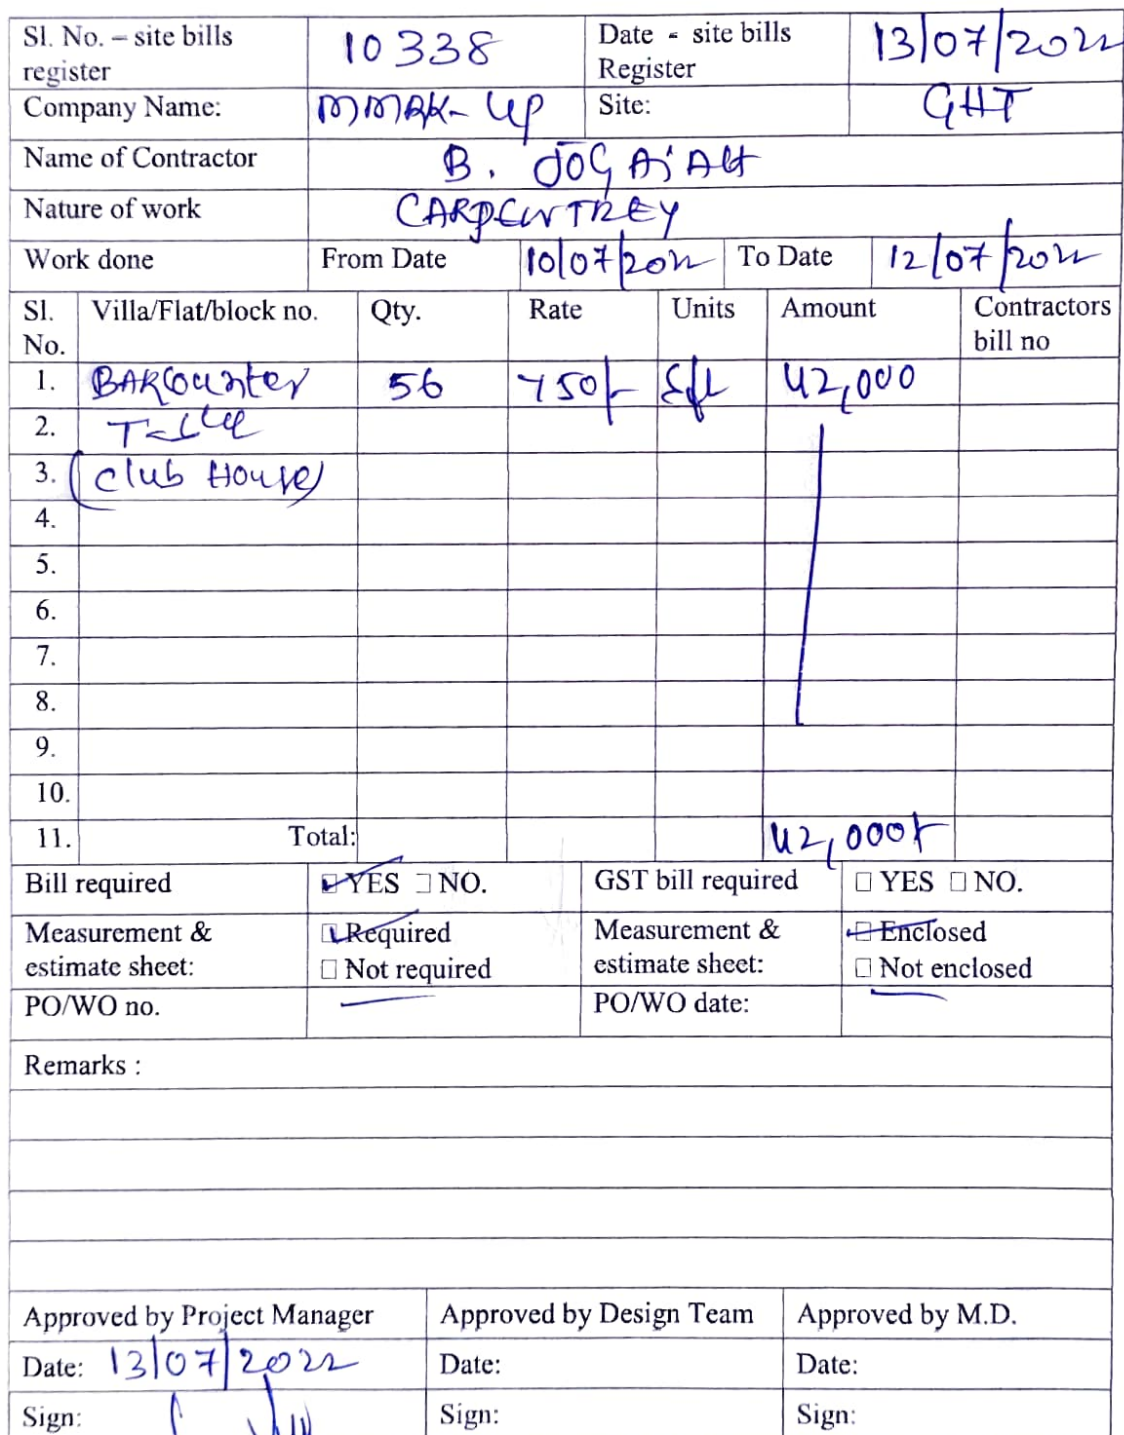 Sl. No. – site bills register 10338 Date - site bills Register 13/07/2022
Company Name: Site: GHT
Name of Contractor B.
Nature of work CARPENTREY
Work done From Date 10/07/2022 To Date 12/07/2022
Sl. No. Villa/Flat/block no. Qty. Rate Units Amount Contractors bill no
1. BARCounter 56 750/- Sft 42,000
2.
3. (Club House)
4.
5.
6.
7.
8.
9.
10.
11. Total: 42,000/-
Bill required YES NO. GST bill required YES NO.
Measurement & estimate sheet: Required Not required Measurement & estimate sheet: Enclosed Not enclosed
PO/WO no. PO/WO date:
Remarks :
Approved by Project Manager Approved by Design Team Approved by M.D.
Date: 13/07/2022 Date: Date:
Sign: Sign: Sign: